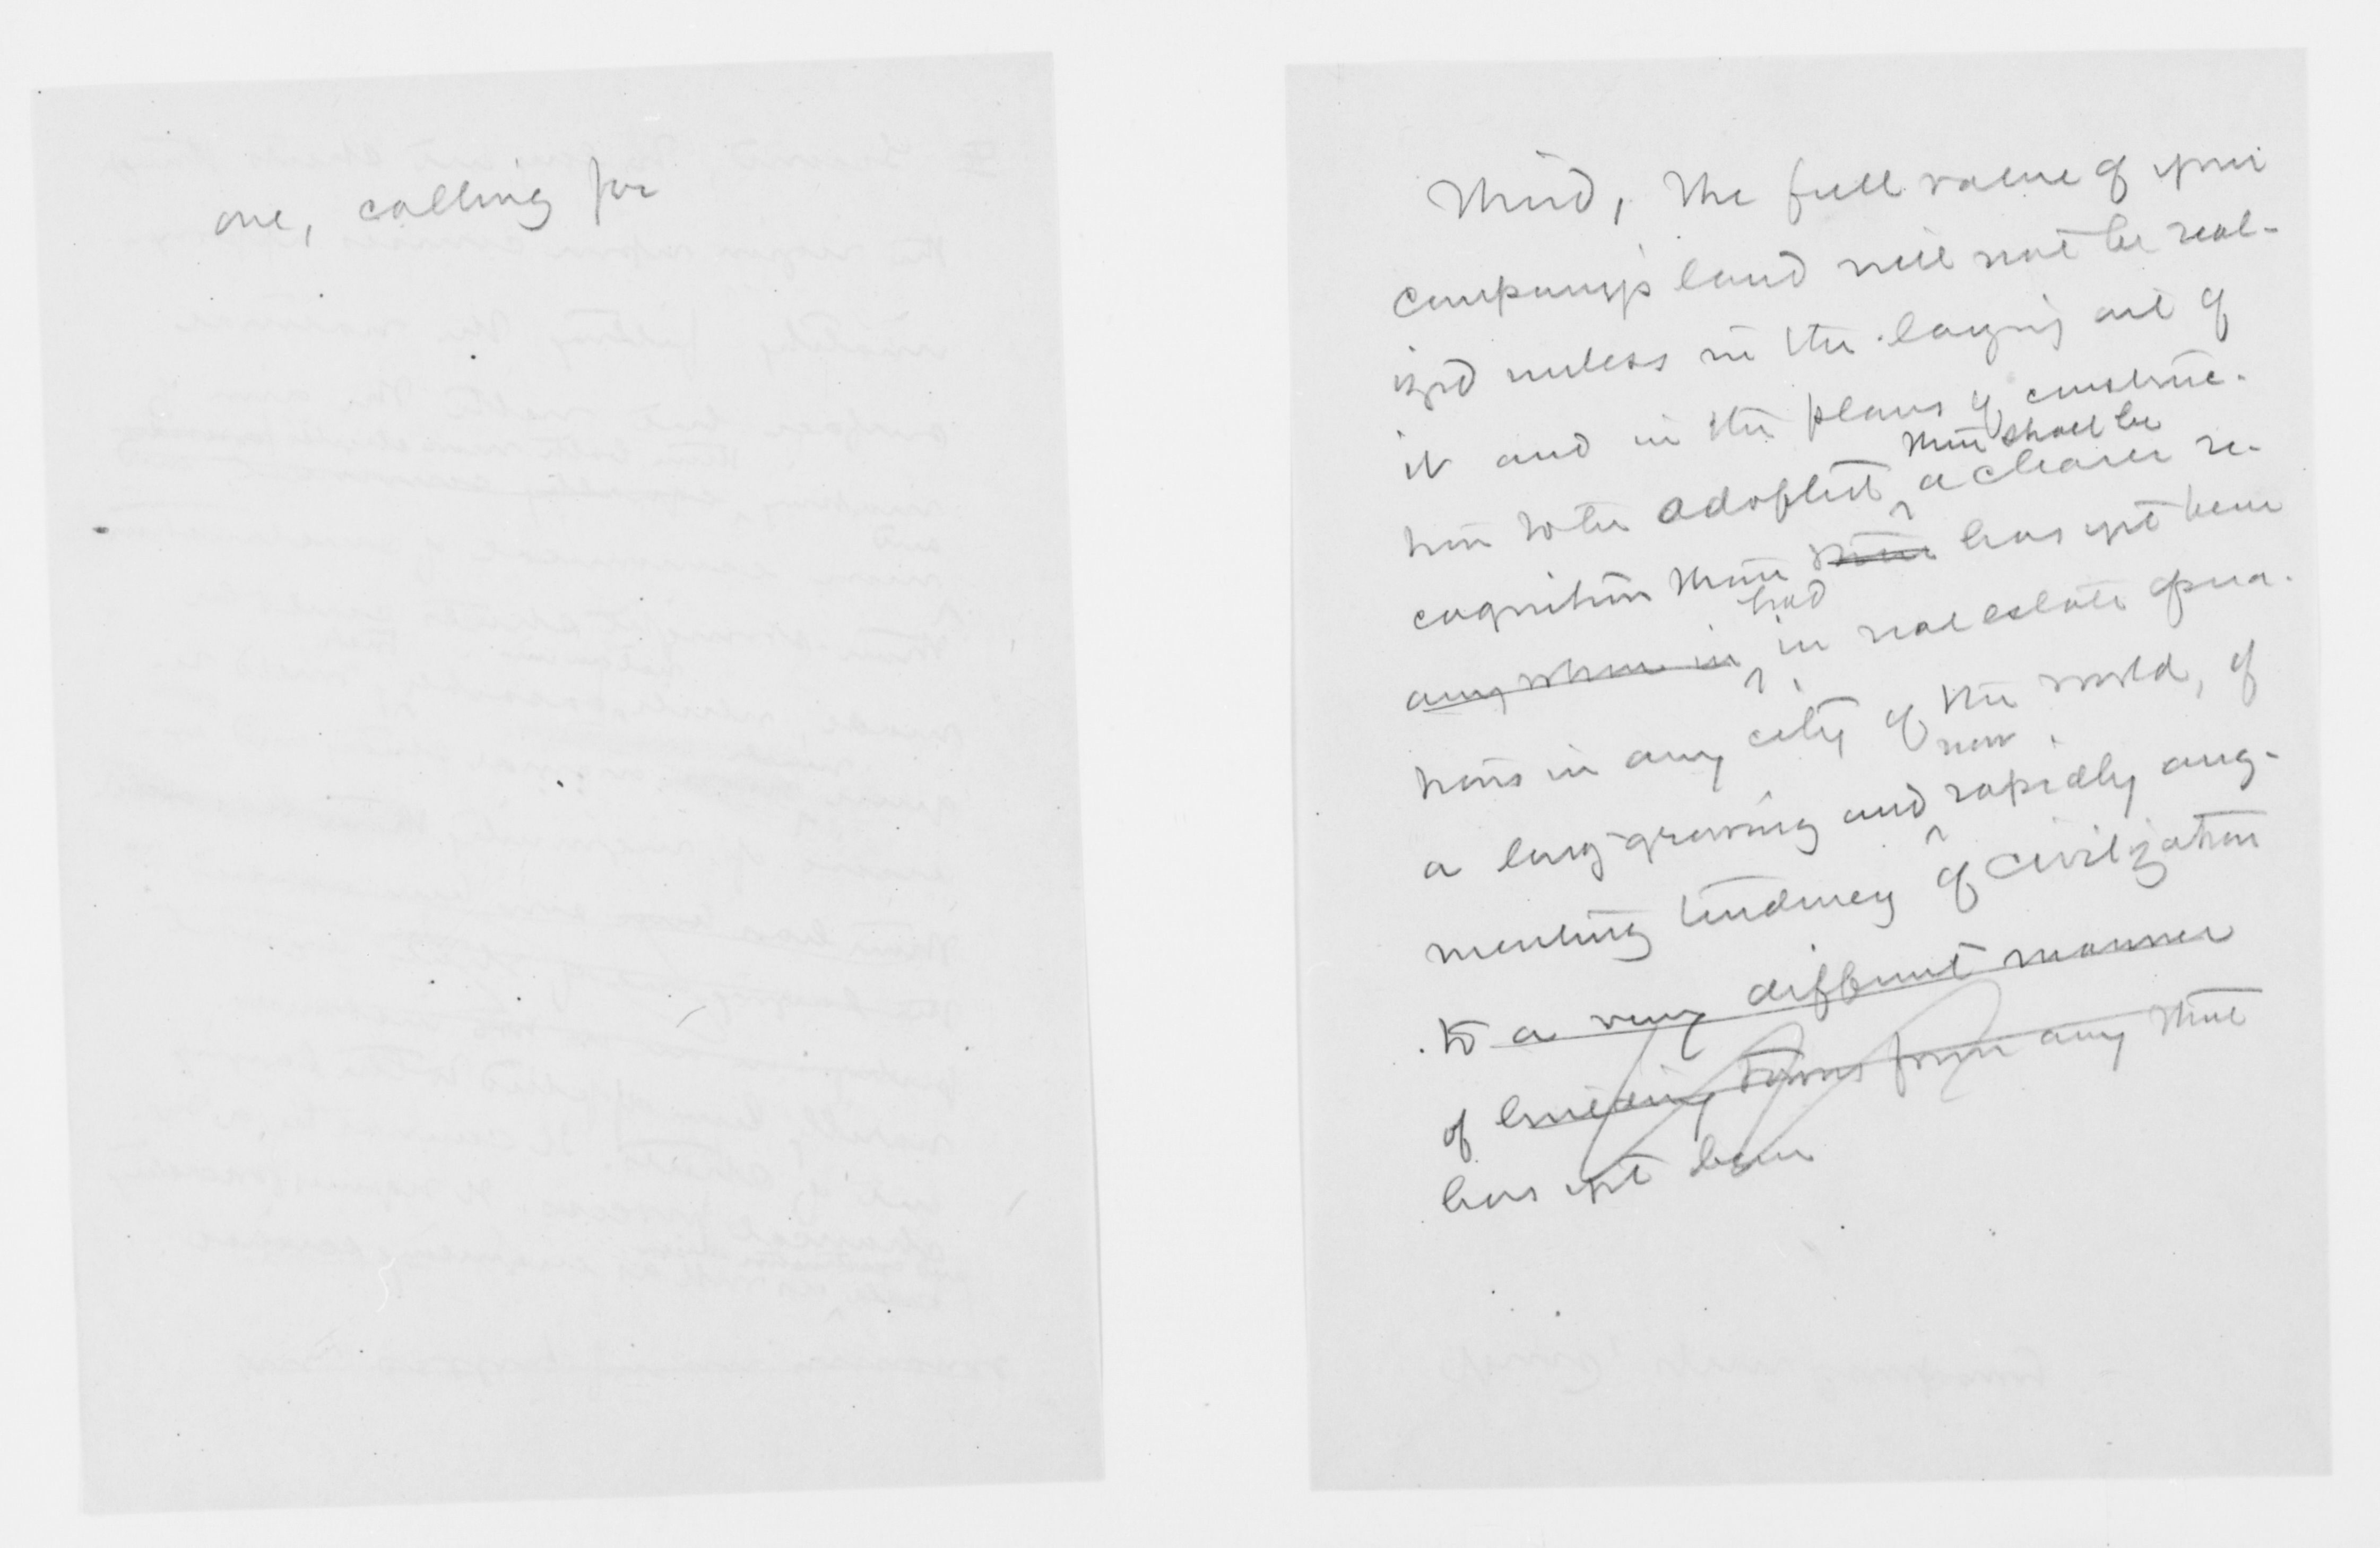 one, calling for
Third, The full value of your
company's land will not be real-
ized unless in the laying out of
it and in the plans of construc-
there shall be
tion to be adopted, a clearer re-
cognition than has yet been
had
any where in in real estate opera-
tions in any city of the world, of
now
a long growing and rapidly aug-
menting tendency of civilization
to a very different manner
of building towns from any that
has yet been